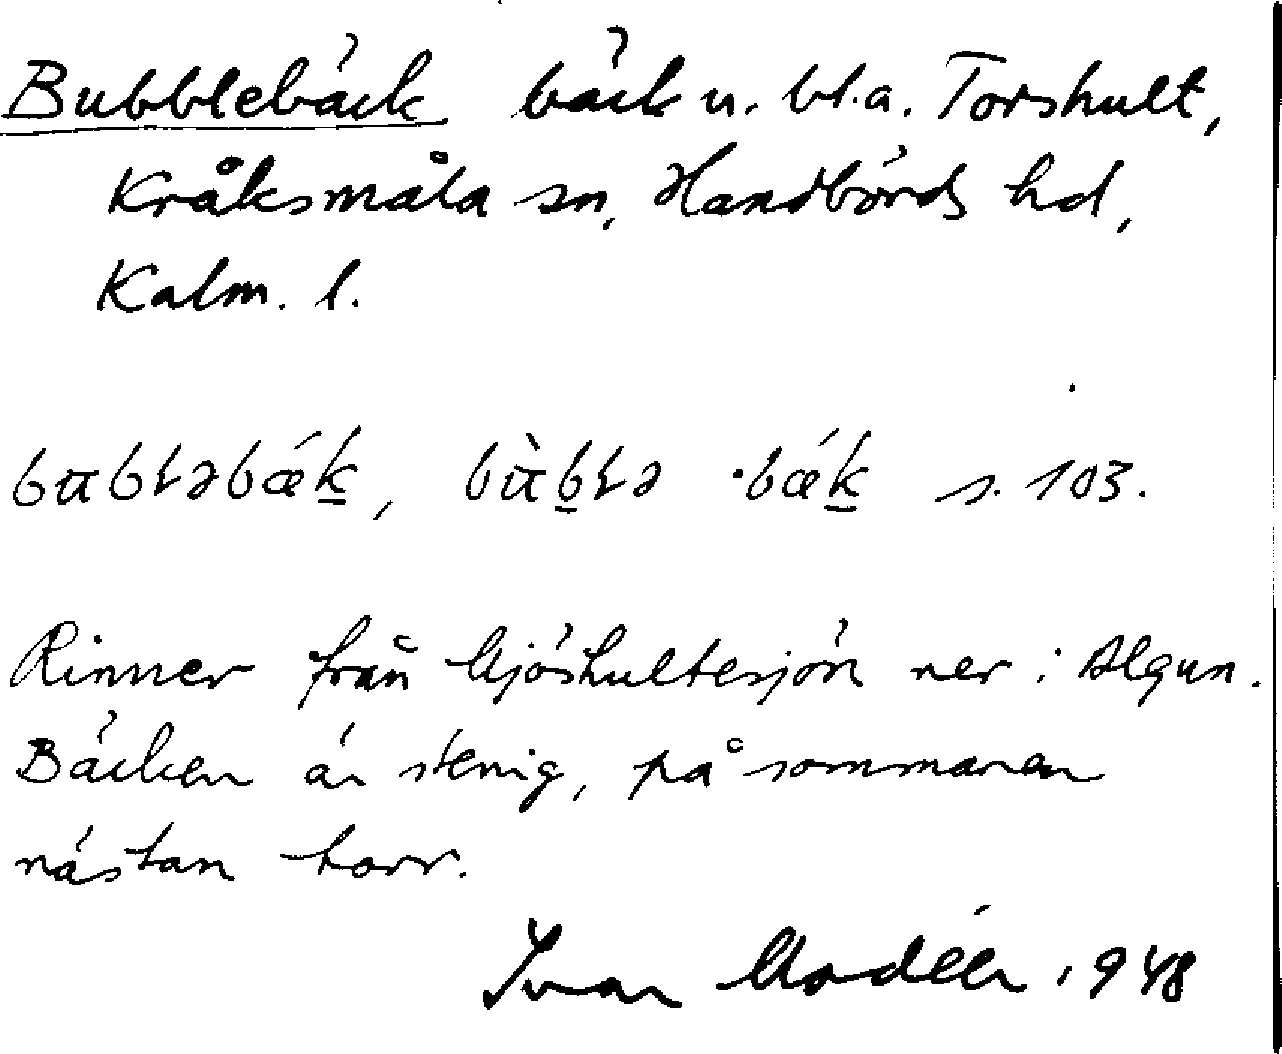 Bubblebäck bäck u. bl.a. Torshult,
Kråksmåla sn, Handbörds hd,
Kalm. l.
bubləbǽk̲, bùb̲lə ·bǽk̲ s. 103.
Rinner från Mjöshultesjön ner i Algun.
Bäcken är stenig, på sommaren
nästan torr.
Ivar Modéer 1948